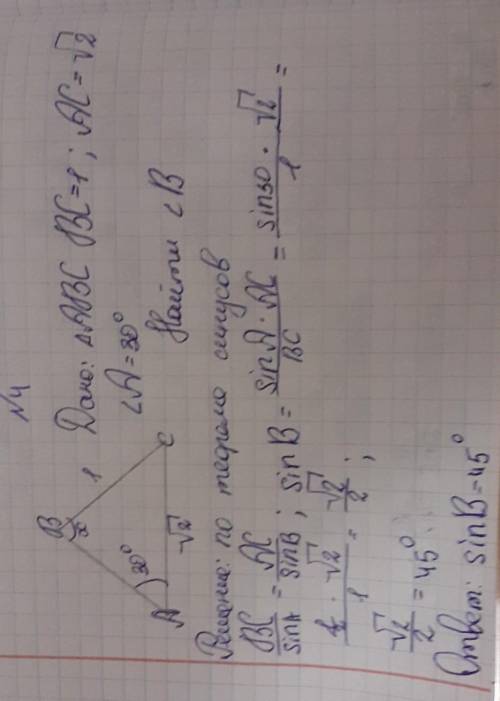 N4
Дано: △ABC BC = 1; AC = √2
∠A = 30°
Найти ∠B
B
x
1
30°
A
√2
C
Решение: по теореме синусов
BC/sinA = AC/sinB; sinB = sinA · AC/BC = sin30 · √2/1 =
½ · √2/1 = √2/2;
√2/2 = 45°
Ответ: sinB = 45°